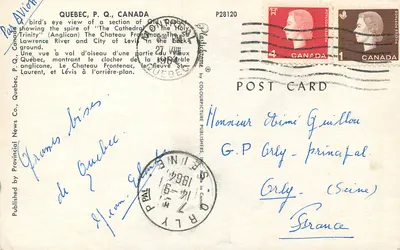 Par Avion
QUEBEC, P. Q., CANADA
P28120
A bird's eye view of a section of Old Quebec
showing the spire of "The Cathedral of the Holy
Trinity (Anglican) The Chateau Frontenac The St.
Lawrence River and City of Levis in the back-
ground.
Une vue à vol d'oiseau d'une partie du Vieux
Québec, montrant le clocher de la cathédrale
anglicane, le Chateau Frontenac, le fleuve St-
Laurent, et Lévis à l'arrière-plan.
Published by Provincial News Co., Quebec,
Plastichrome
by COLOURPICTURE PUBLISHERS,
QUEBEC
1964
4
CANADA
1
CANADA
POST CARD
Grosses bises
de Quebec.
Monsieur Aimé Guillou
G.P Orly-principal
Orly. (Seine)
France
ORLY PPAL
SEINE
1964